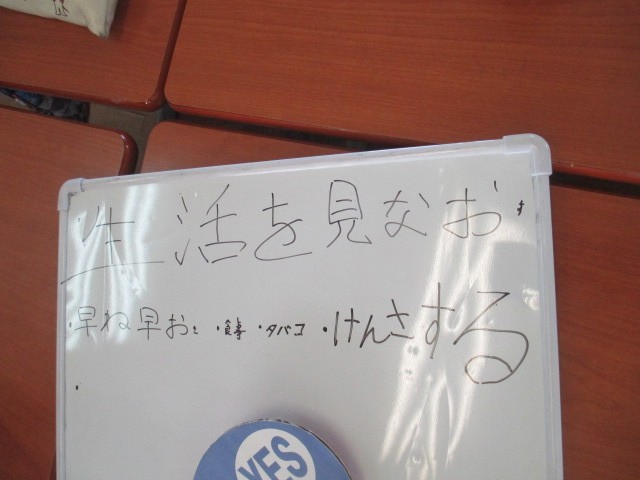 生活を見なおす
・早ね早おき ・食事 ・タバコ ・けんさする
・
YES